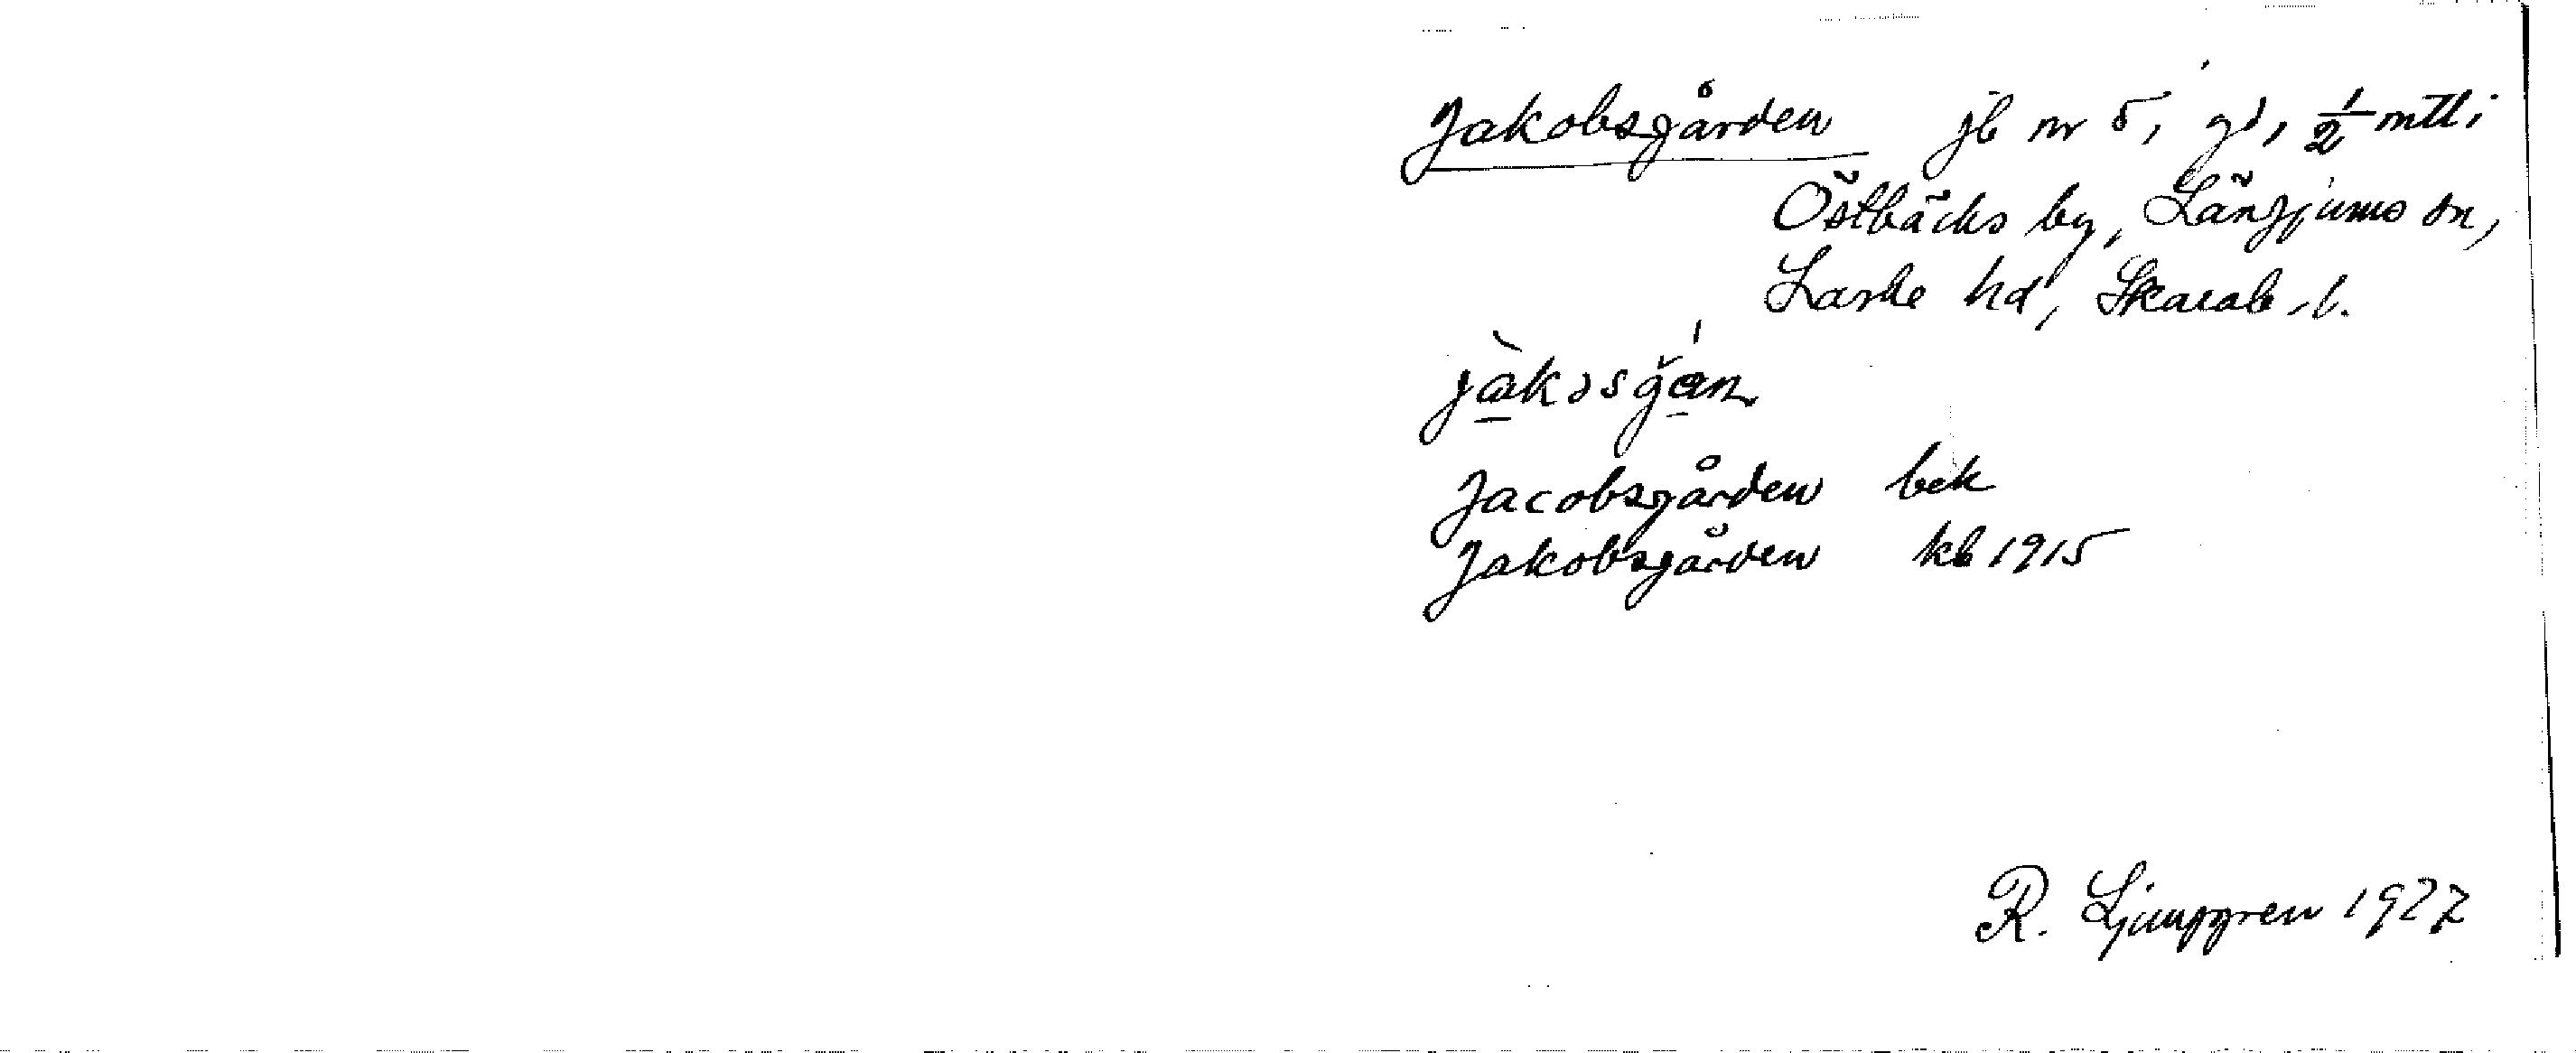 Jakobsgården jb nr 5, gd, 1/2 mtl i
Östbäcks by, Längjums sn,
Laske hd, Skarab. l.
Jacobsgården bek
Jakobsgården kb 1915
R. Ljunggren 1927